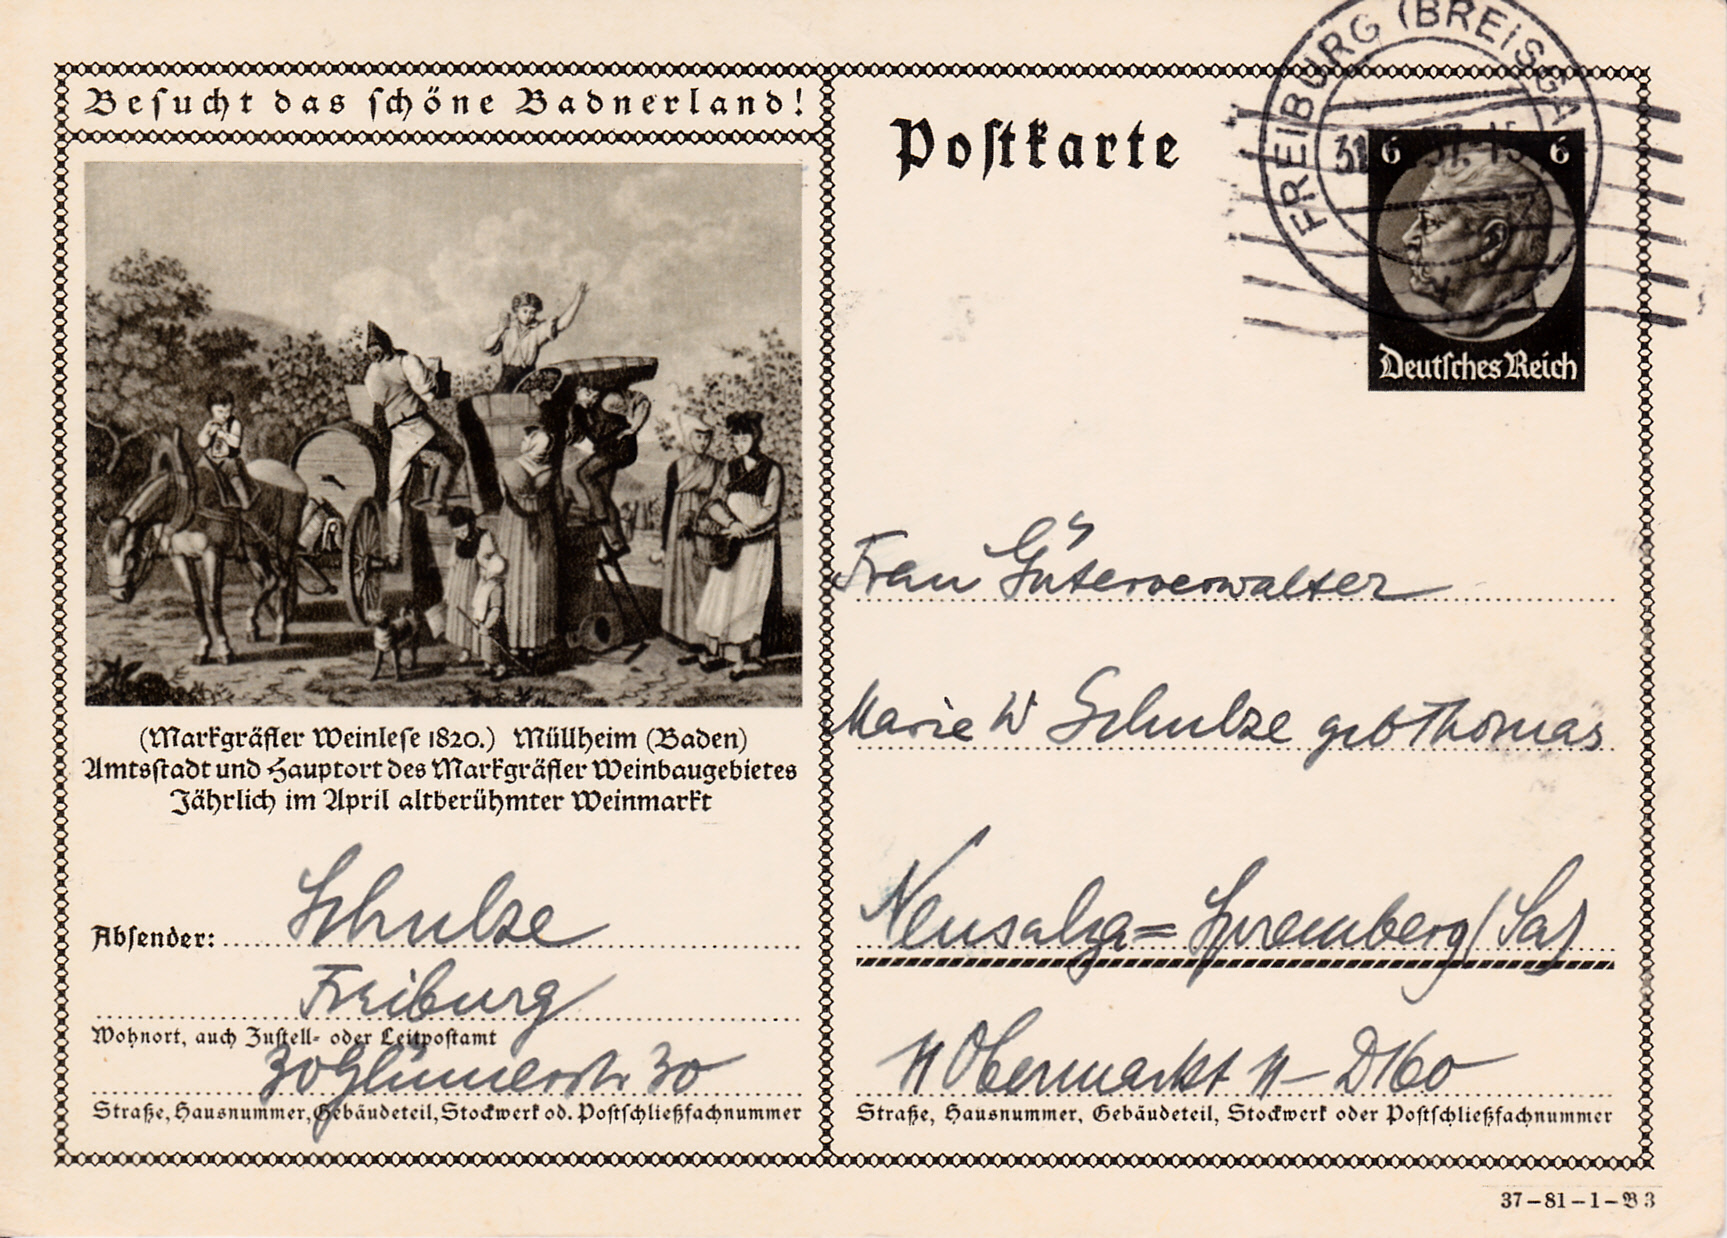 Besucht das schöne Badnerland!
(Markgräfler Weinlese 1820.) Müllheim (Baden)
Amtsstadt und Hauptort des Markgräfler Weinbaugebietes
Jährlich im April altberühmter Weinmarkt
Absender: Schulze
Freiburg
Wohnort, auch Zustell- oder Leitpostamt
30 Glümerstr 30
Straße, Hausnummer, Gebäudeteil, Stockwerk od. Postschließfachnummer
Postkarte
FREIBURG (BREISGA
31 37.-15
6 6
Deutsches Reich
Frau Güterverwalter
Marie W Schulze geb Thomas
Neusalza=Spremberg/Sa)
11 Obermarkt 11 - D160
Straße, Hausnummer, Gebäudeteil, Stockwerk oder Postschließfachnummer
37-81-1-B3